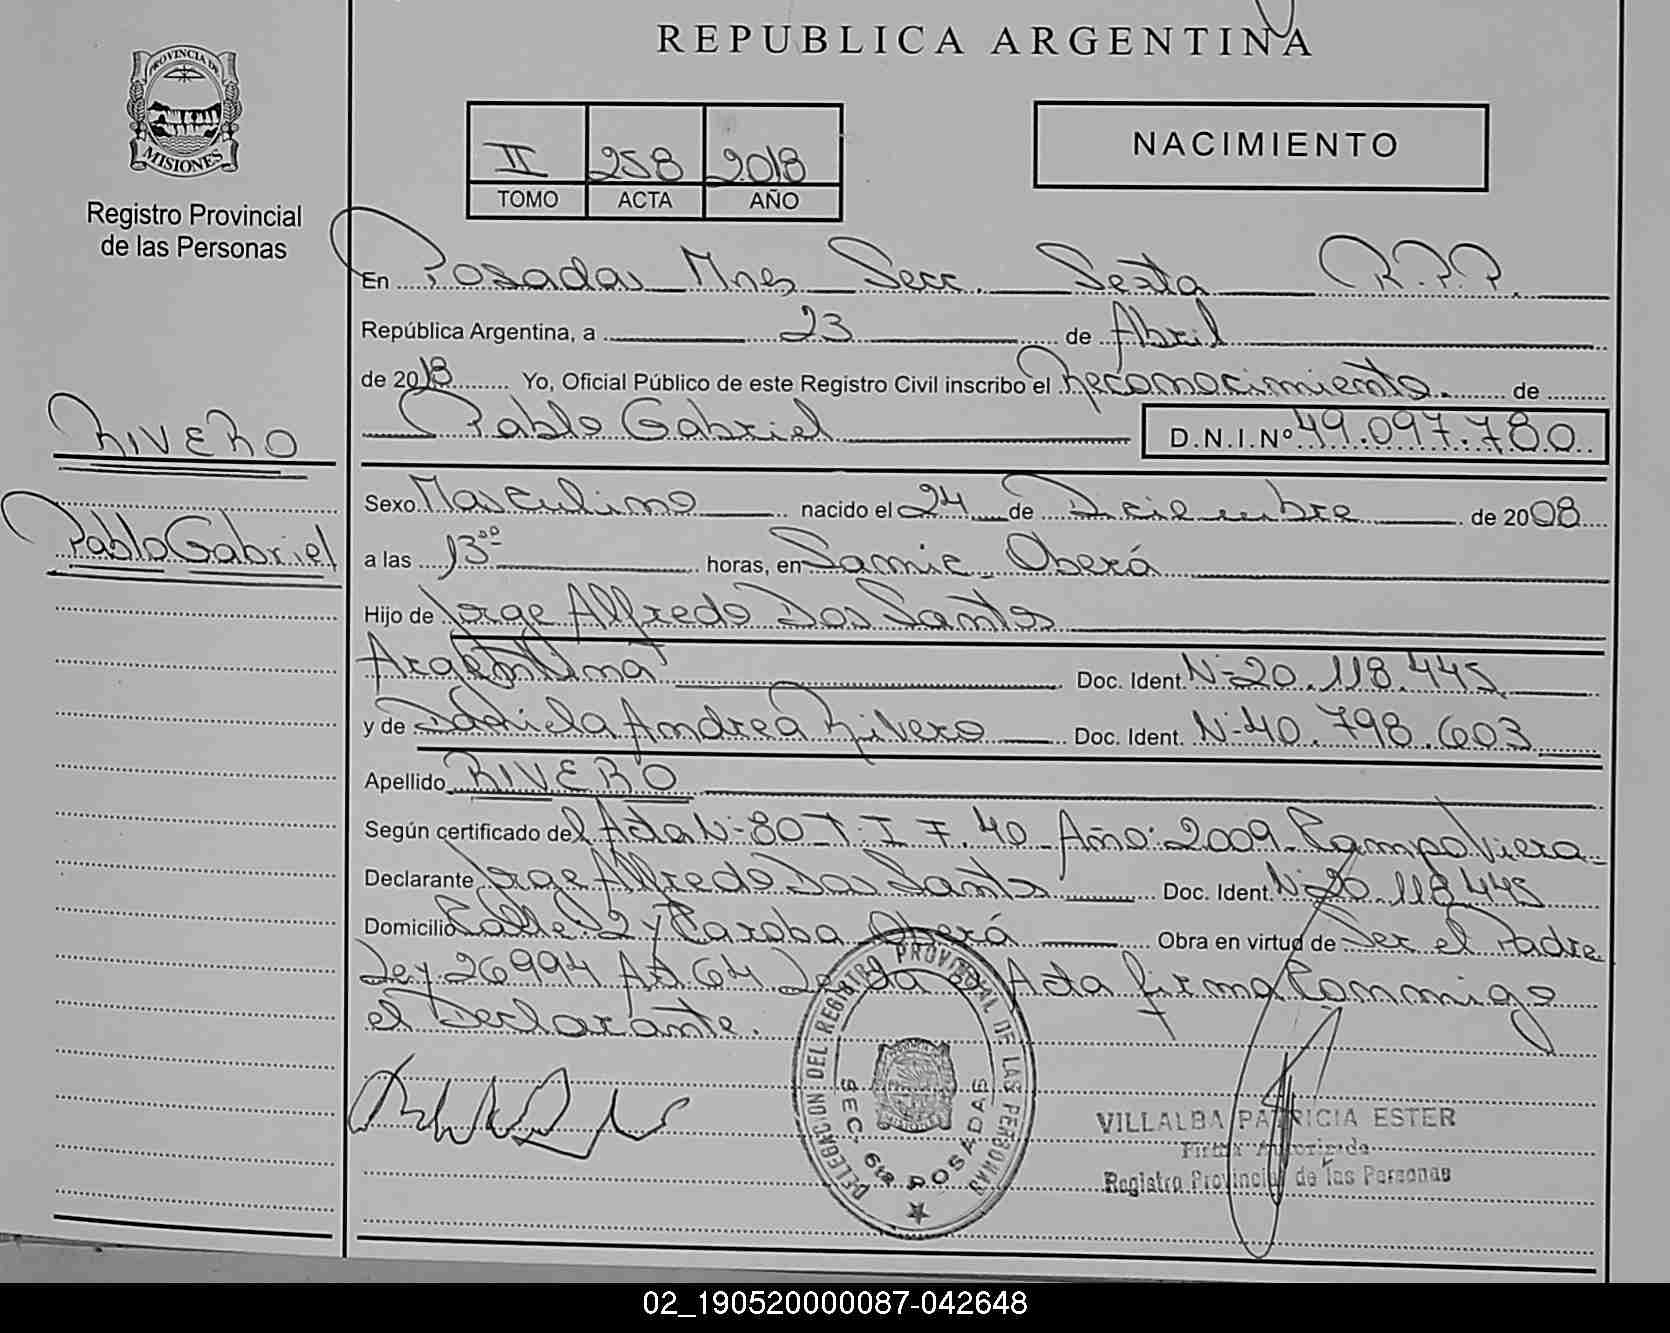 REPUBLICA ARGENTINA
PROVINCIA DE
MISIONES
Registro Provincial
de las Personas
II 258 2018
TOMO ACTA AÑO
NACIMIENTO
En Posadas Mnes Secc. Sexta R.P.P.
República Argentina, a 23 de Abril
de 2018 Yo, Oficial Público de este Registro Civil inscribo el Reconocimiento de
Pablo Gabriel D.N.I.Nº 49.097.780
RIVERO
Pablo Gabriel
Sexo Masculino nacido el 24 de Diciembre de 2008
a las 13⁰⁰ horas, en Samic - Oberá
Hijo de Jorge Alfredo Dos Santos
Argentina Doc. Ident. Nº 20.118.445
y de Daniela Andrea Rivero Doc. Ident. Nº 40.798.603
Apellido RIVERO
Según certificado del Acta Nº 80 T: I F. 40 Año: 2009 - Campo Viera -
Declarante Jorge Alfredo Dos Santos Doc. Ident. Nº 20.118.445
Domicilio Calle 12 y Caroba Oberá Obra en virtud de Ser el Padre
Ley 26994 Art 64 Leída el Acta firma Conmigo
el Declarante.
DELEGACION DEL REGISTRO PROVINCIAL DE LAS PERSONAS
SEC. 6ta POSADAS
VILLALBA PATRICIA ESTER
Firma Autorizada
Registro Provincial de las Personas
02_190520000087-042648